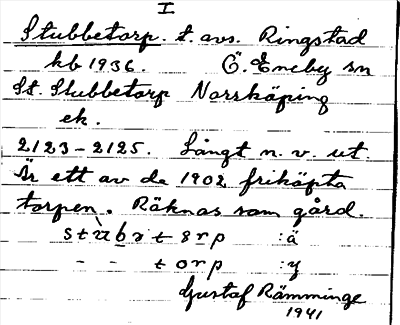 I
Stubbetorp. t. avs. Ringstad
kb 1936. Ö. Eneby sn
St. Stubbetorp Norrköping
ek.
2123-2125. Långt n. v. ut.
Är ett av de 1902 friköpta
torpen. Räknas som gård.
:ä
- - torp :y
Gustaf Rämminge
1941